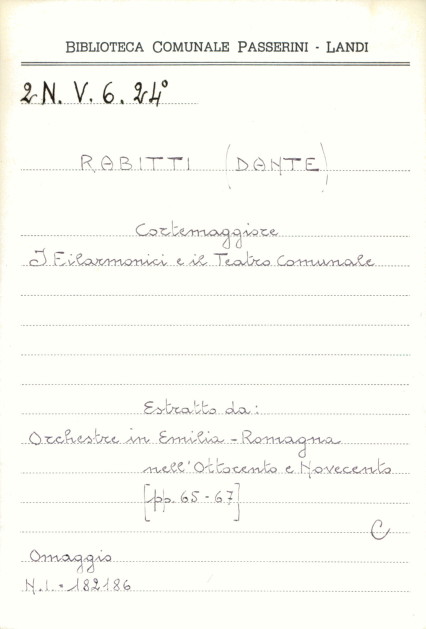 BIBLIOTECA COMUNALE PASSERINI - LANDI
2N. V. 6. 24°
RABITTI (DANTE)
Cortemaggiore
I Filarmonici e il Teatro Comunale
Estratto da:
Orchestre in Emilia-Romagna
nell'Ottocento e Novecento
[pp. 65-67]
C
Omaggio
N.I. - 182186